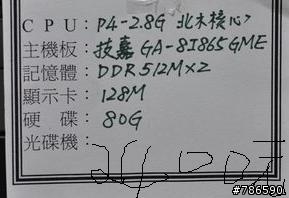 CPU：P4-2.8G 北木核心
主機板：技嘉 GA-8I865GME
記憶體：DDR512M×2
顯示卡：128M
硬碟：80G
光碟機：
2400元
#786590